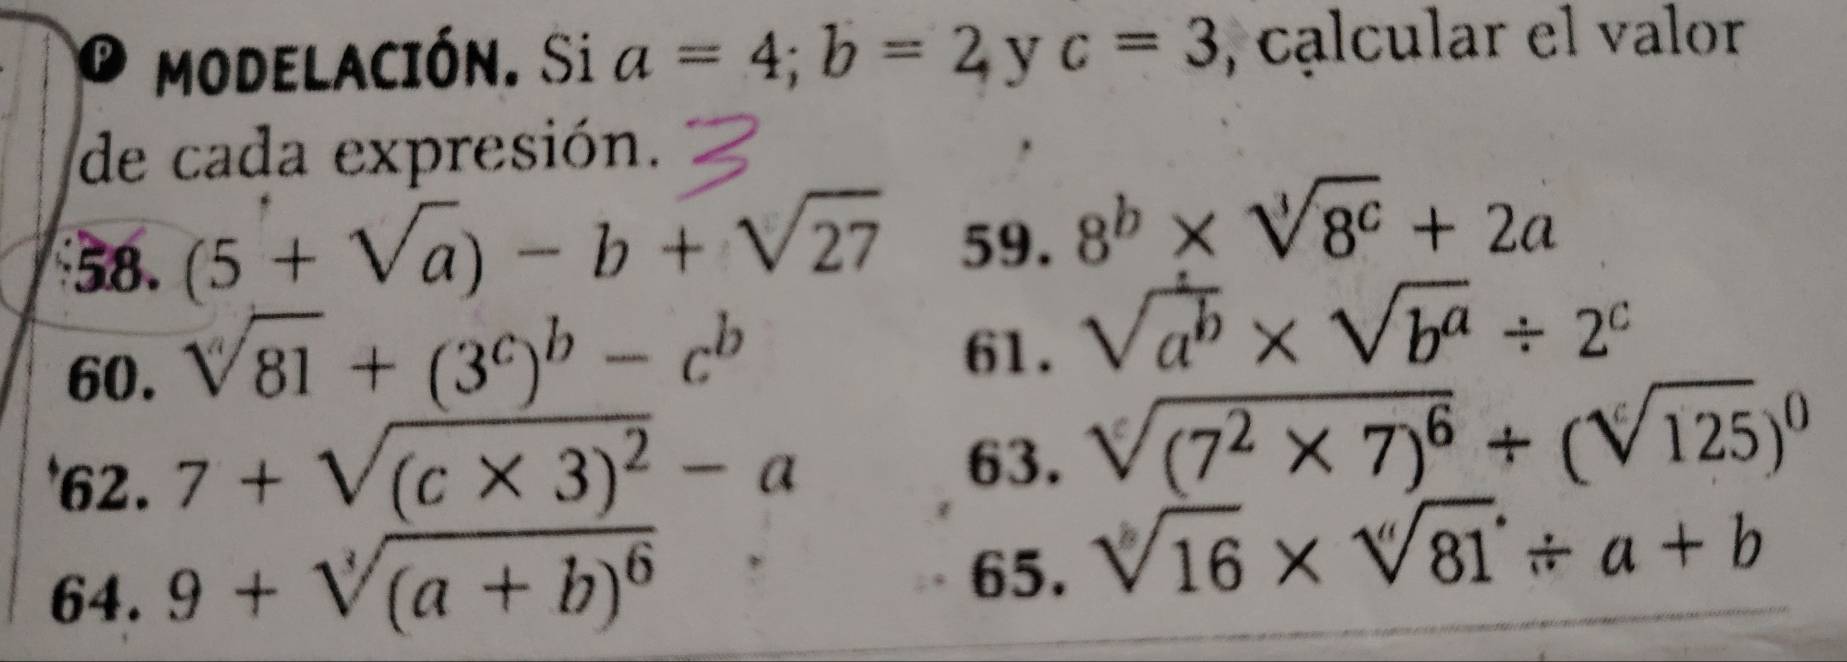 P MODELACIÓN. Si a = 4; b = 2, y c = 3, calcular el valor
de cada expresión. 3
58. (5 + √a) − b + ᶜ√27 59. 8ᵇ × ³√8ᶜ + 2a
60. ᵃ√81 + (3ᶜ)ᵇ − cᵇ 61. √aᵇ × √bᵃ ÷ 2ᶜ
62. 7 + √(c × 3)² − a 63. ᶜ√(7² × 7)⁶ ÷ (ᶜ√125)⁰
64. 9 + ³√(a + b)⁶ 65. ᵇ√16 × ᵃ√81 ÷ a + b